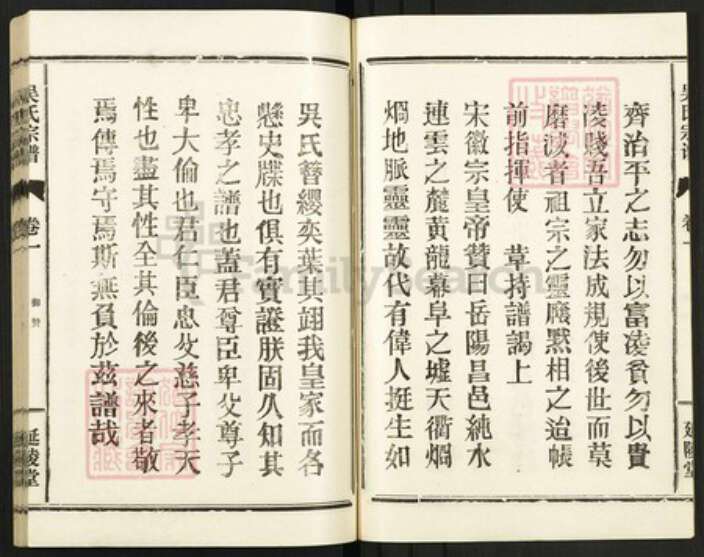 吳氏宗譜
卷一
延陵堂
齊治平之志勿以富淩貧勿以貴
淩賤吾立家法成規使後世而莫
磨滅者祖宗之靈黙相之迨帳
前指揮使 草持譜謁上
宋徽宗皇帝贊曰岳陽昌邑純水
連雲之麓黄龍幕阜之墟天衢烱
烱地脈靈靈故代有偉人挺生如
吳氏簪纓奕葉其翊我皇家而各
懸史牒也俱有實證朕固久知其
忠孝之譜也蓋君尊臣卑父尊子
卑大倫也君仁臣忠父慈子孝天
性也盡其性全其倫後之來者敬
焉傳焉守焉斯無負於茲譜哉
吳氏宗譜
卷一
御贊
延陵堂
FamilySearch